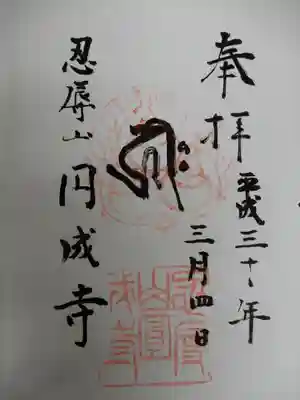 奉拝
平成三十年
三月四日
忍辱山 円成寺